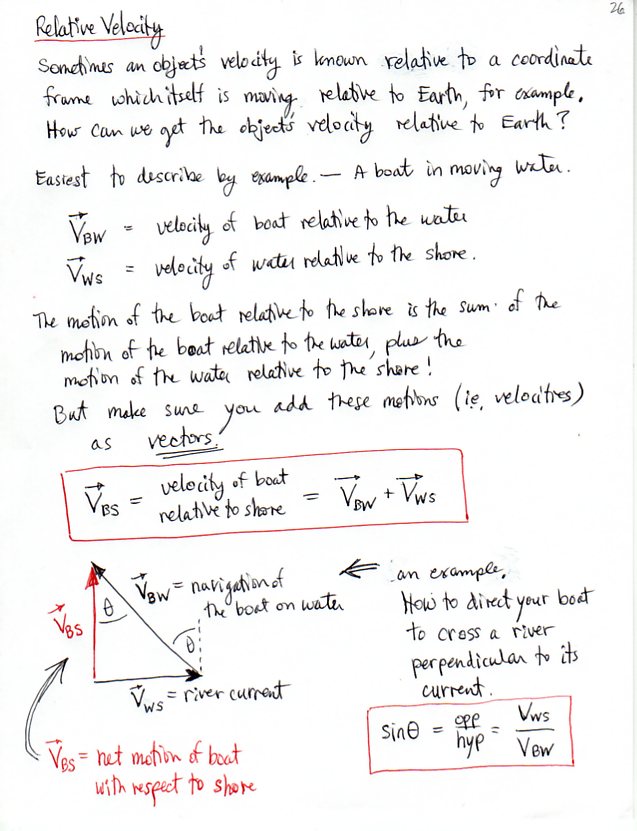 26
Relative Velocity
Sometimes an object's velocity is known relative to a coordinate
frame which itself is moving relative to Earth, for example.
How can we get the object's velocity relative to Earth?
Easiest to describe by example. — A boat in moving water.
V⃗BW = velocity of boat relative to the water
V⃗WS = velocity of water relative to the shore.
The motion of the boat relative to the shore is the sum of the
motion of the boat relative to the water, plus the
motion of the water relative to the shore!
But make sure you add these motions (i.e. velocities)
as vectors.
V⃗BS = velocity of boat
relative to shore = V⃗BW + V⃗WS
V⃗BW = navigation of
the boat on water
θ
θ
V⃗BS
V⃗WS = river current
V⃗BS = net motion of boat
with respect to shore
⇐ an example.
How to direct your boat
to cross a river
perpendicular to its
current.
sinθ = opp/hyp = VWS/VBW